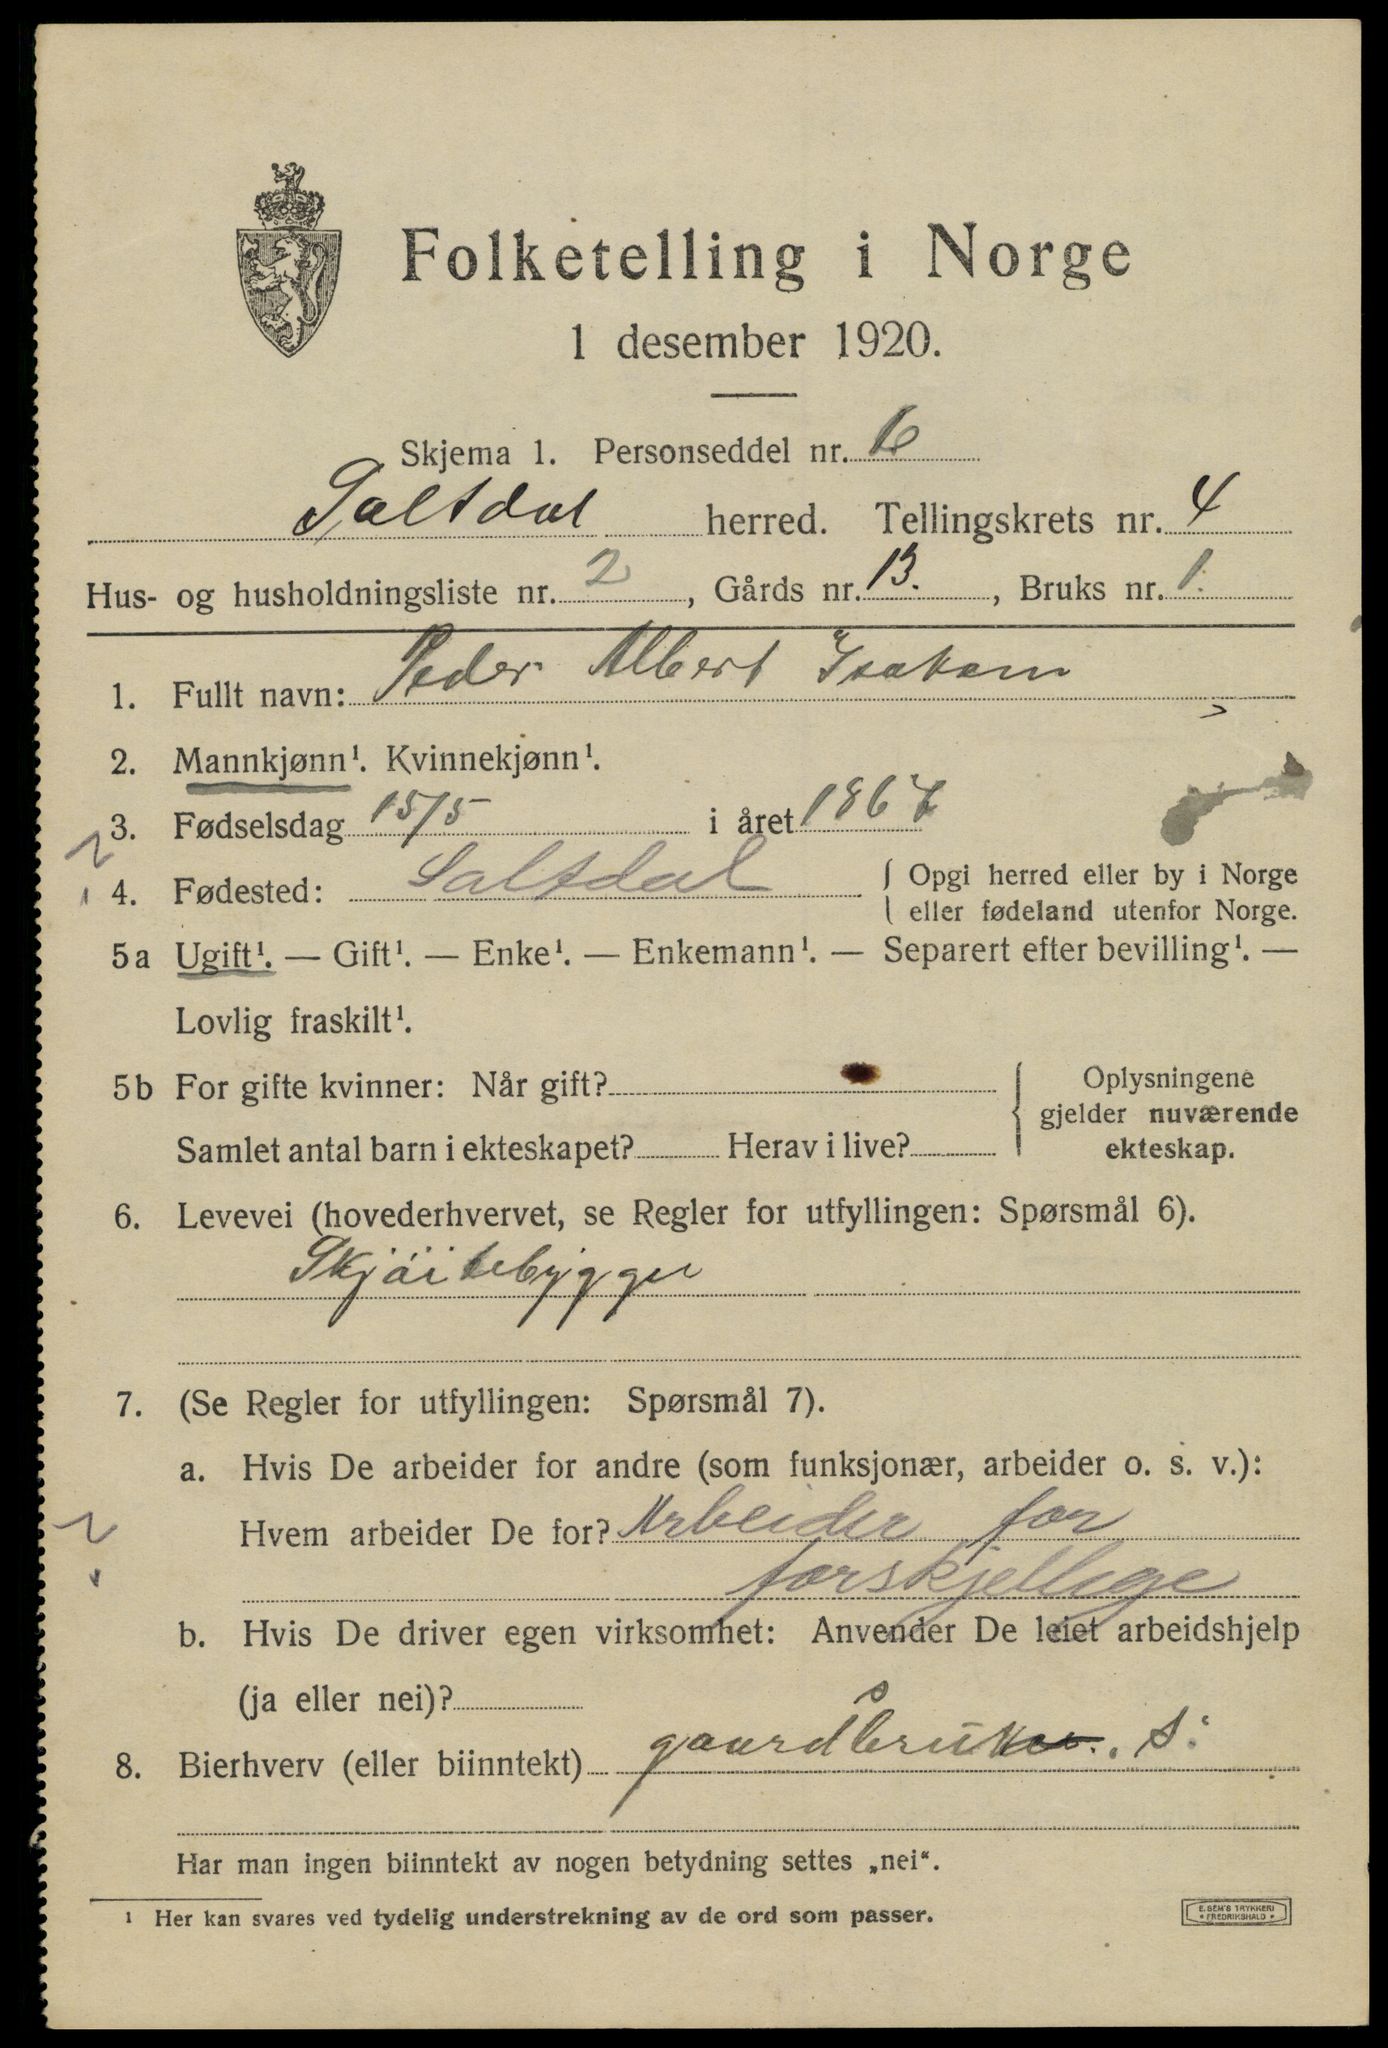 Folketelling i Norge
1 desember 1920.
Skjema 1. Personseddel nr. 6
Saltdal herred. Tellingskrets nr. 4
Hus- og husholdningsliste nr. 2, Gårds nr. 13., Bruks nr. 1.
1. Fullt navn: Peder Albert
2. Mannkjønn¹. Kvinnekjønn¹.
3. Fødselsdag 15/5 i året 1867
4. Fødested: Saltdal { Opgi herred eller by i Norge
eller fødeland utenfor Norge.
5a Ugift¹. — Gift¹. — Enke¹. — Enkemann¹. — Separert efter bevilling¹. —
Lovlig fraskilt¹.
5b For gifte kvinner: Når gift? { Oplysningene
gjelder nuværende
Samlet antal barn i ekteskapet? Herav i live? ekteskap.
6. Levevei (hovederhvervet, se Regler for utfyllingen: Spørsmål 6).
Skjöitebygger
7. (Se Regler for utfyllingen: Spørsmål 7).
a. Hvis De arbeider for andre (som funksjonær, arbeider o. s. v.):
Hvem arbeider De for? Arbeider for
forskjellige
b. Hvis De driver egen virksomhet: Anvender De leiet arbeidshjelp
(ja eller nei)?
8. Bierhverv (eller biinntekt) gaardbruker. S:
Har man ingen biinntekt av nogen betydning settes „nei“.
¹ Her kan svares ved tydelig understrekning av de ord som passer.
E. SEM'S TRYKKERI
• FREDRIKSHALD •